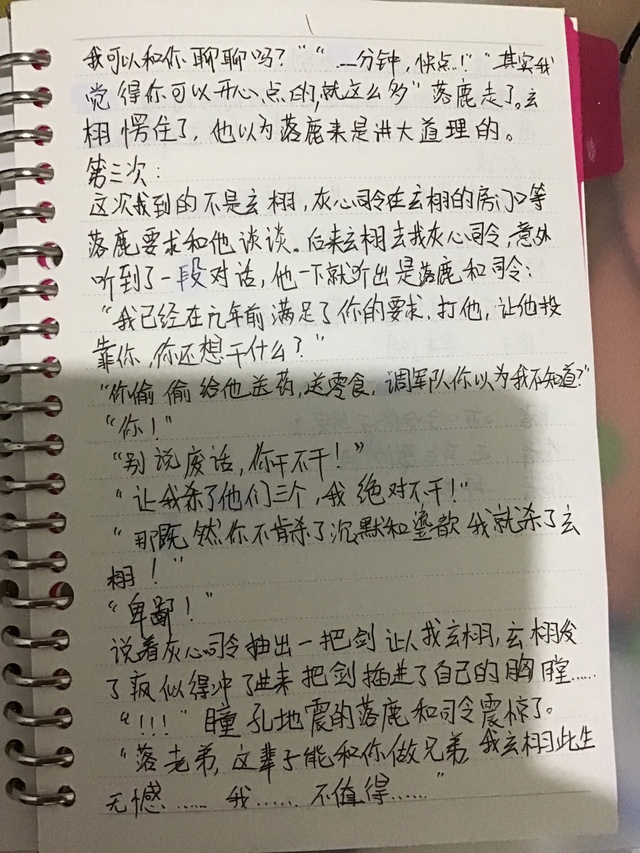 我可以和你聊聊吗？”“一分钟，快点！”“其实我
觉得你可以开心点的，就这么多”落鹿走了。玄
栩愣住了，他以为落鹿来是讲大道理的。
第三次：
这次找到的不是玄栩，灰心司令在玄栩的房门口等
落鹿要求和他谈谈。后来玄栩去找灰心司令，意外
听到了一段对话，他一下就听出是落鹿和司令：
“我已经在几年前满足了你的要求，打他，让他投
靠你，你还想干什么？”
“你偷偷给他送药，送零食，调军队你以为我不知道？”
“你！”
“别说废话，你干不干！”
“让我杀了他们三个，我绝对不干！”
“那既然你不肯杀了沉默和鎏歆我就杀了玄
栩！”
“卑鄙！”
说着灰心司令抽出一把剑让人找玄栩，玄栩发
了疯似得冲了进来把剑插进了自己的胸膛……
“！！！”瞳孔地震的落鹿和司令震惊了。
“落老弟，这辈子能和你做兄弟 我玄栩此生
无憾……我……不值得……”